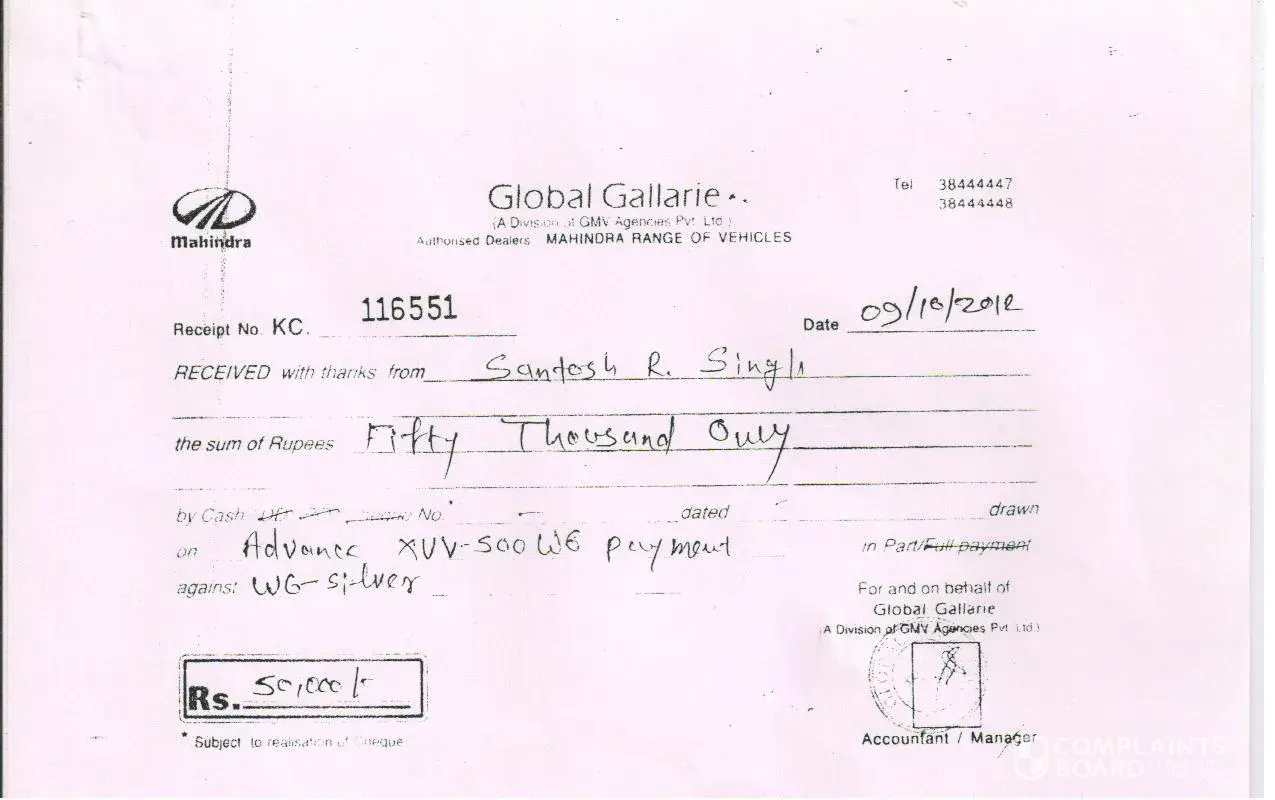 Mahindra
Global Gallarie
(A Division of GMV Agencies Pvt. Ltd.)
Authorised Dealers MAHINDRA RANGE OF VEHICLES
Tel 38444447
38444448
Receipt No. KC. 116551
Date 09/10/2012
RECEIVED with thanks from Santosh R. Singh
the sum of Rupees Fifty Thousand Only
by Cash No.* - dated drawn
on Advance XUV-500 W6 payment in Part/Full payment
against W6-Silver
For and on behalf of
Global Gallarie
(A Division of GMV Agencies Pvt. Ltd.)
Rs. 50,000/-
* Subject to realisation of Cheque
Accountant / Manager
COMPLAINTS
BOARD